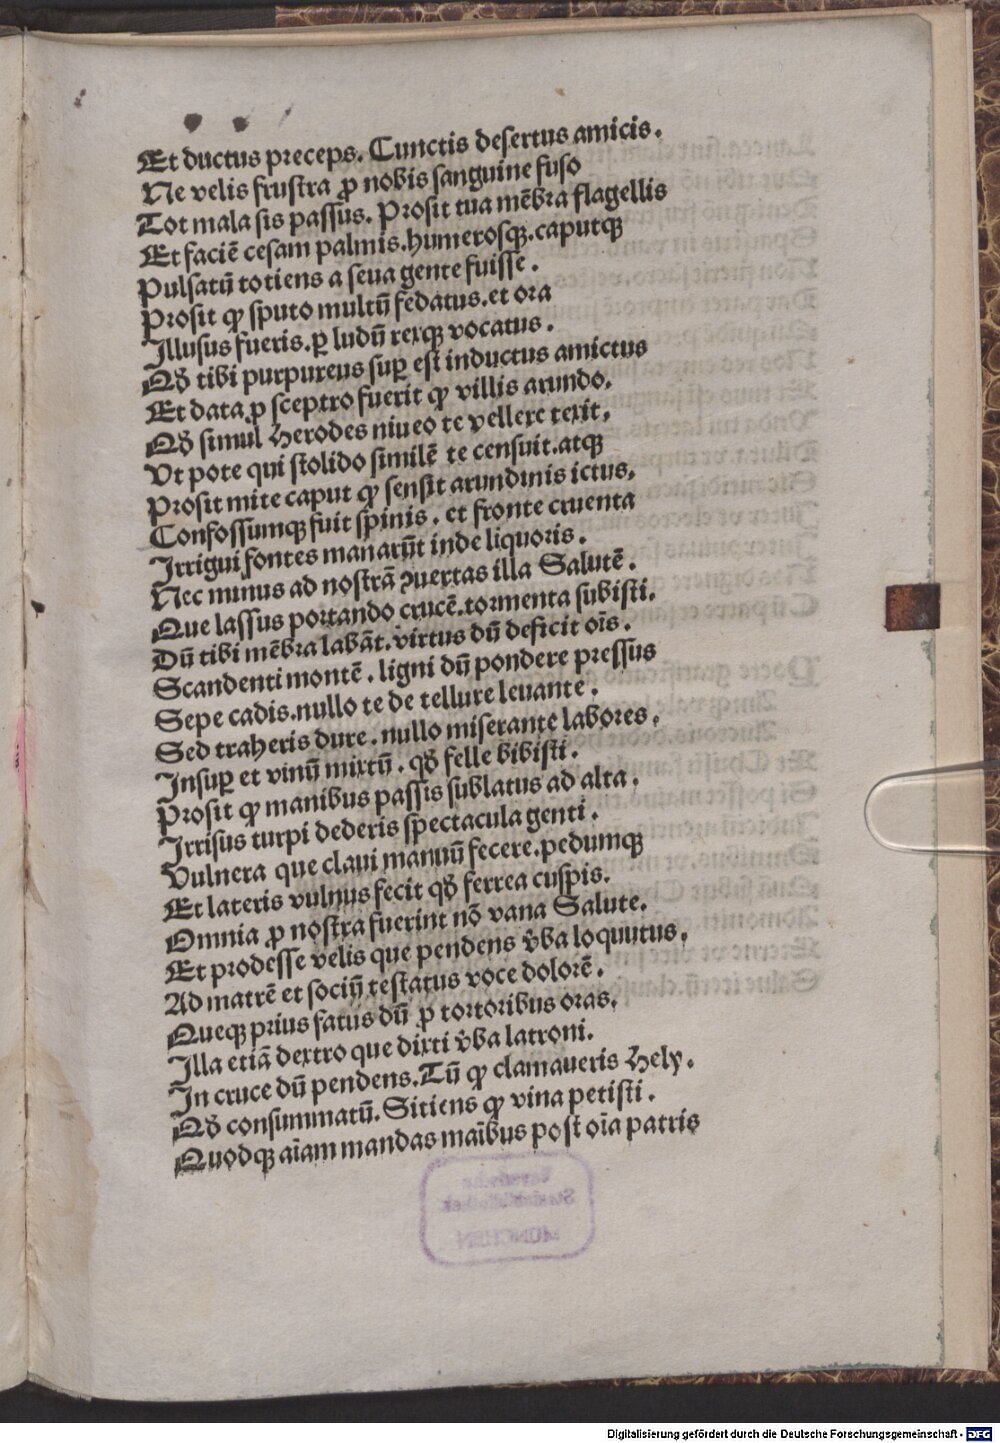 Et ductus preceps. Cunctis desertus amicis.
Ne velis frustra ꝓ nobis sanguine fuso
Tot mala sis passus. Prosit tua mēbra flagellis
Et faciē cesam palmis.humerosqꝫ.caputqꝫ
Pulsatū totiens a seua gente fuisse.
Prosit ꝙ sputo multū fedatus.et ora
Illusus fueris.ꝑ ludū rexqꝫ vocatus.
Qđ tibi purpureus suꝑ est inductus amictus
Et data ꝓ sceptro fuerit ꝙ villis arundo.
Qđ simul Herodes niueo te vellere texit.
Vt pote qui stolido similē te censuit.atqꝫ
Prosit mite caput ꝙ sensit arundinis ictus.
Confossumqꝫ fuit spinis. et fronte cruenta
Irrigui fontes manarūt inde liquoris.
Nec minus ad nostrā ꝯuertas illa Salutē.
Que lassus portando crucē.tormenta subisti.
Dū tibi mēbra labāt.virtus dū deficit oīs.
Scandenti montē. ligni dū pondere pressus
Sepe cadis.nullo te de tellure leuante.
Sed traheris dure. nullo miserante labores.
Insuꝑ et vinū mixtū. qđ felle bibisti.
Prosit ꝙ manibus passis sublatus ad alta.
Irrisus turpi dederis spectacula genti.
Vulnera que claui manuū fecere.pedumqꝫ
Et lateris vulnus fecit qđ ferrea cuspis.
Omnia ꝓ nostra fuerint nō vana Salute.
Et prodesse velis que pendens v̄ba loquutus.
Ad matrē et sociū testatus voce dolorē.
Queqꝫ prius fatus dū ꝓ tortoribus oras.
Illa etiā dextro que dixti v̄ba latroni.
In cruce dū pendens.Tū ꝙ clamaueris Hely.
Qđ consummatū. Sitiens ꝙ vina petisti.
Quodqꝫ aīam mandas maībus post oīa patris
MÜNCHEN
Digitalisierung gefördert durch die Deutsche Forschungsgemeinschaft - DFG